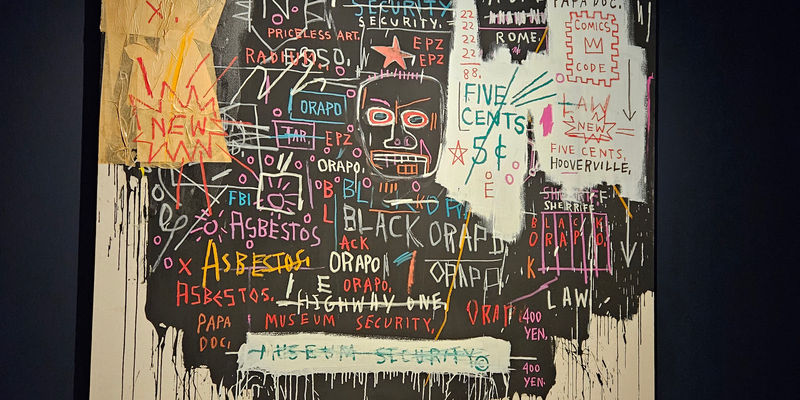 SECURITY.
SECURITY.
PRICELESS ART.
RADIUM
EROSO.
EPZ
EPZ
22
22
22
22
88.
ROME.
PAPA DOC.
COMICS
CODE
NEW
ORAPO
TAR.
EPZ
ORAPO.
FIVE
CENTS
5¢
E
LAW
NEW
FIVE CENTS,
HOOVERVILLE,
FBI
B
L
BL
ASBESTOS
BLACK ORAPO
ACK
ASBESTOS.
ORAPO
ORAPO
E
ORAPO,
ASBESTOS.
HIGHWAY ONE,
SHERRIFF
SHERRIFF
BLACK
ORAPO.
K
LAW
PAPA
DOC,
MUSEUM SECURITY,
400
YEN,
MUSEUM SECURITY
400
YEN.